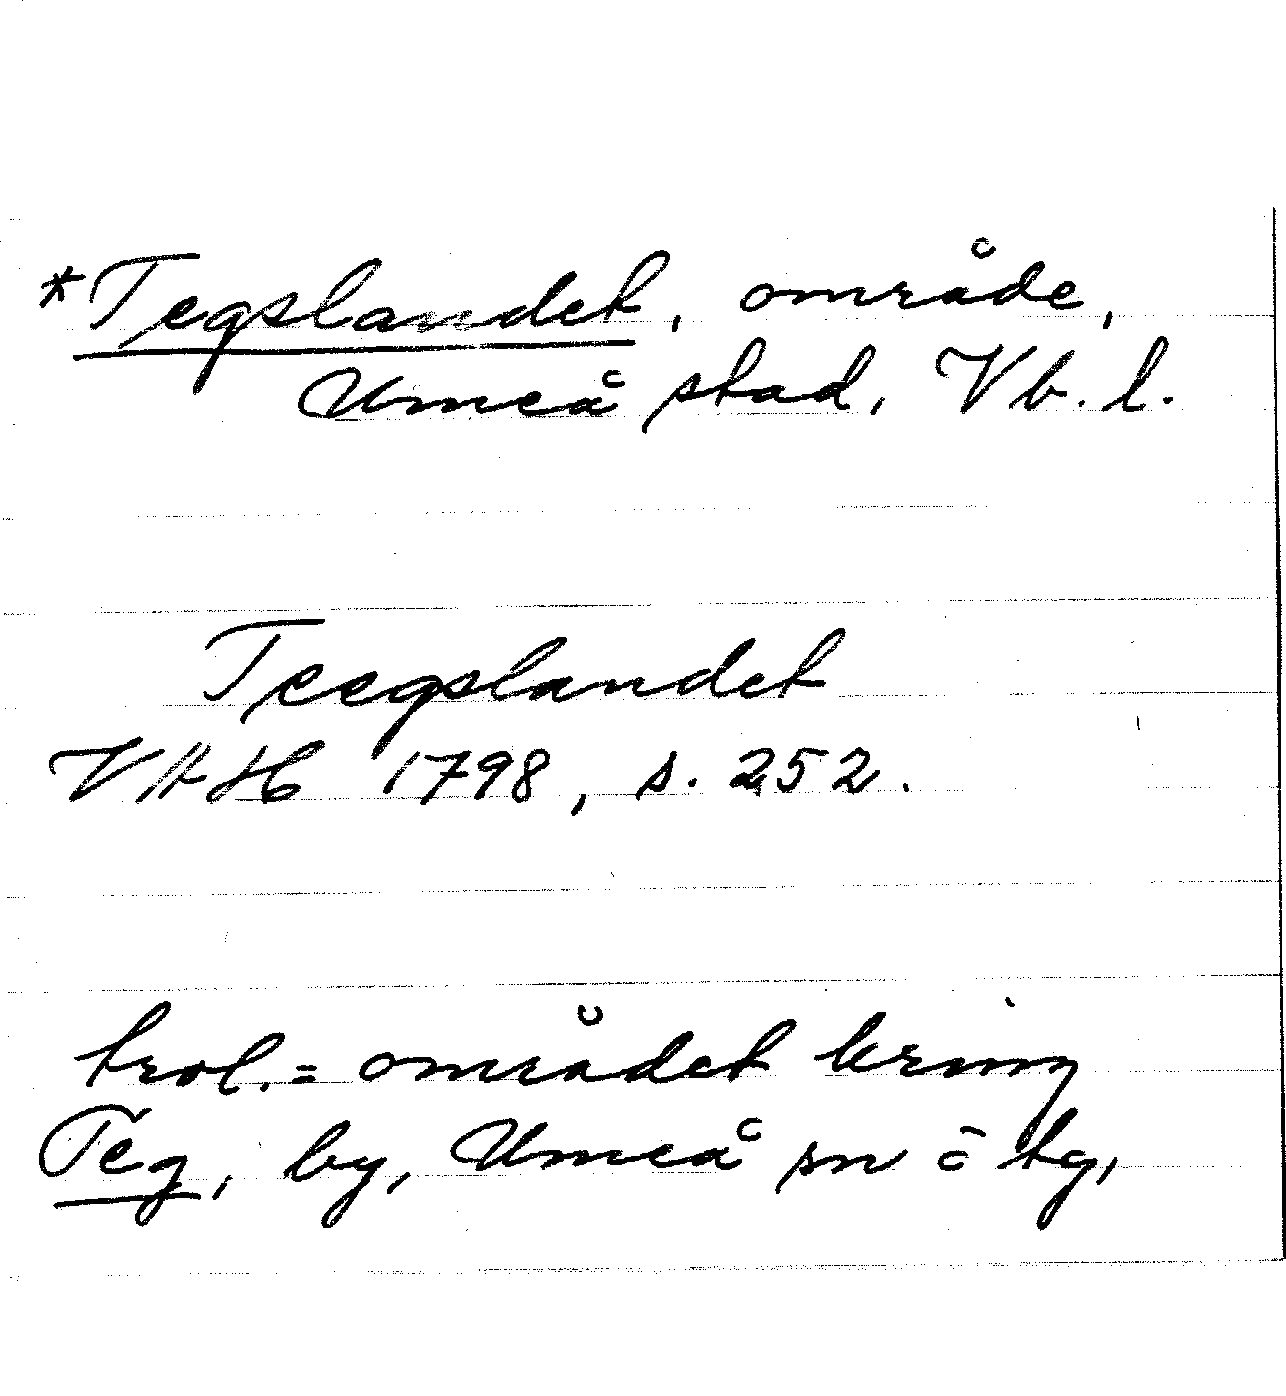 *Tegslandet, område,
Umeå stad, Vb. l.
Teegslandet
VHH 1798, s. 252.
trol. = området kring
Teg, by, Umeå sn o tg,